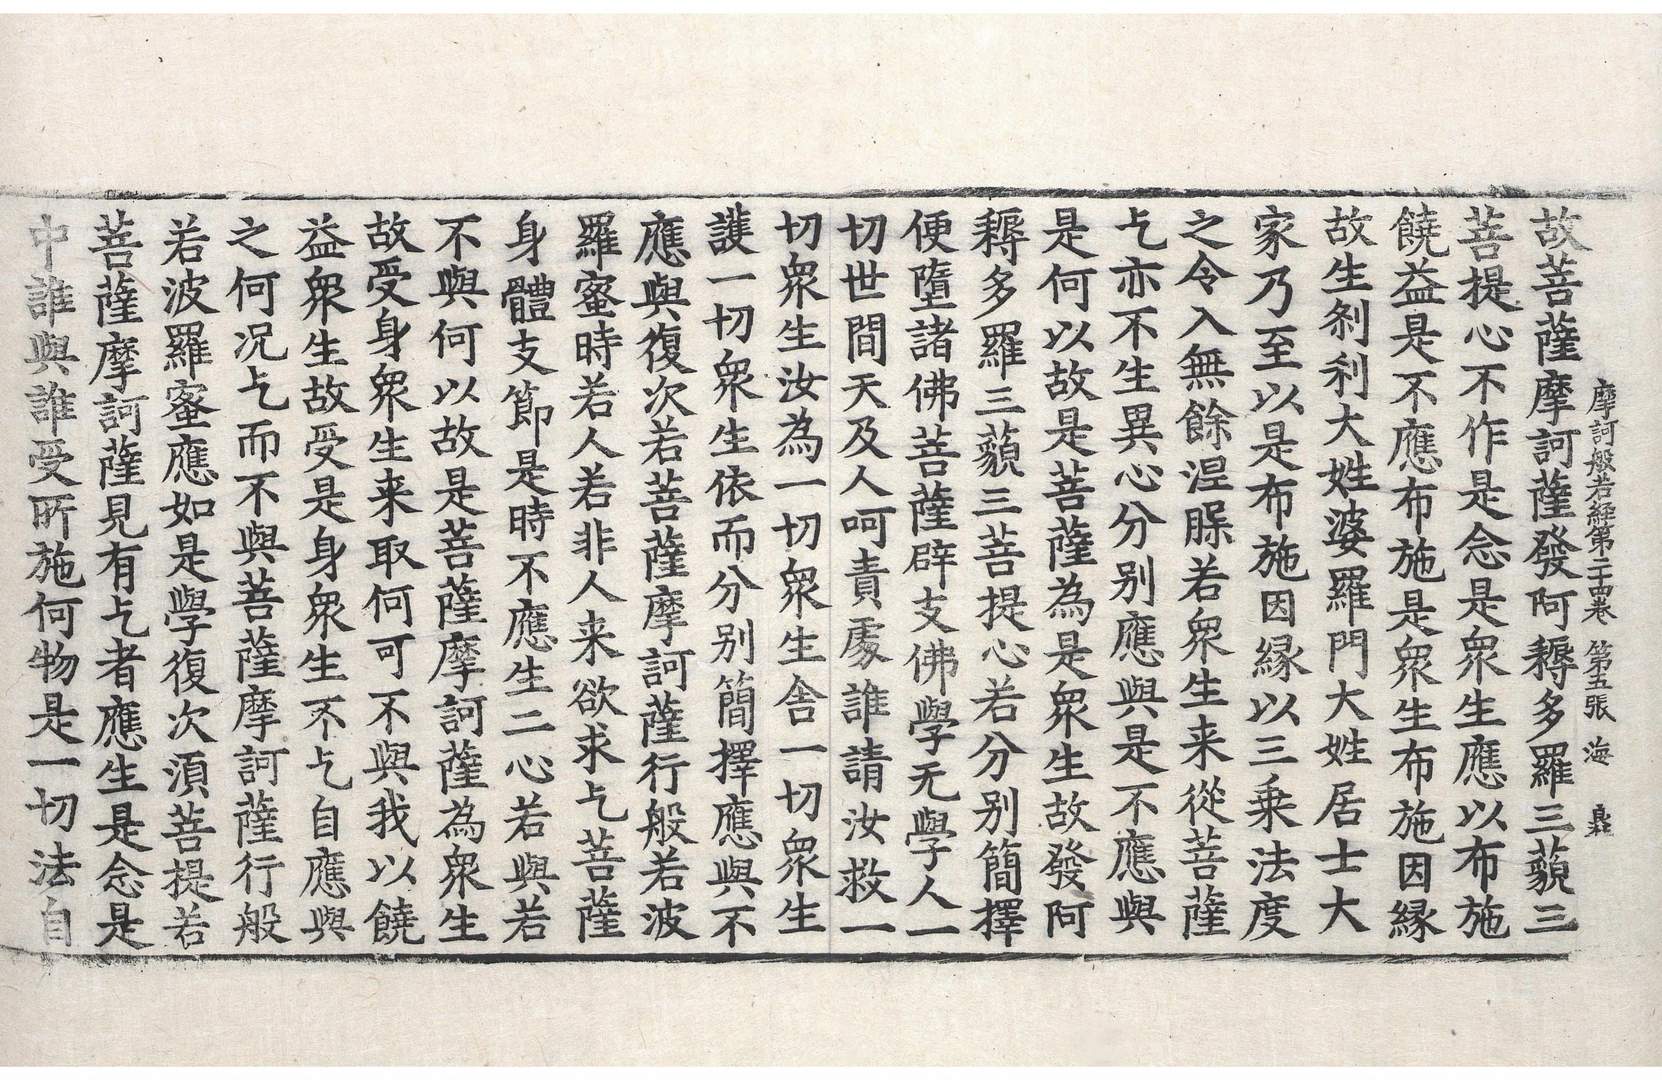 摩訶般若經第二十四卷 第五張 海
故菩薩摩訶薩發阿耨多羅三藐三
菩提心不作是念是衆生應以布施
饒益是不應布施是衆生布施因縁
故生刹利大姓婆羅門大姓居士大
家乃至以是布施因縁以三乗法度
之令入無餘涅槃若衆生来從菩薩
乞亦不生異心分别應與是不應與
是何以故是菩薩為是衆生故發阿
耨多羅三藐三菩提心若分别簡擇
便墮諸佛菩薩辟支佛學无學人一
切世間天及人呵責處誰請汝救一
切衆生汝為一切衆生舎一切衆生
護一切衆生依而分别簡擇應與不
應與復次若菩薩摩訶薩行般若波
羅蜜時若人若非人来欲求乞菩薩
身體支節是時不應生二心若與若
不與何以故是菩薩摩訶薩為衆生
故受身衆生来取何可不與我以饒
益衆生故受是身衆生不乞自應與
之何况乞而不與菩薩摩訶薩行般
若波羅蜜應如是學復次湏菩提若
菩薩摩訶薩見有乞者應生是念是
中誰與誰受所施何物是一切法自